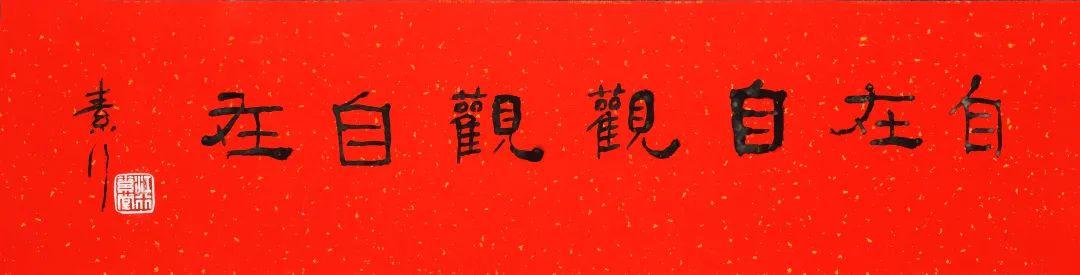 自在自觀觀自在
素行